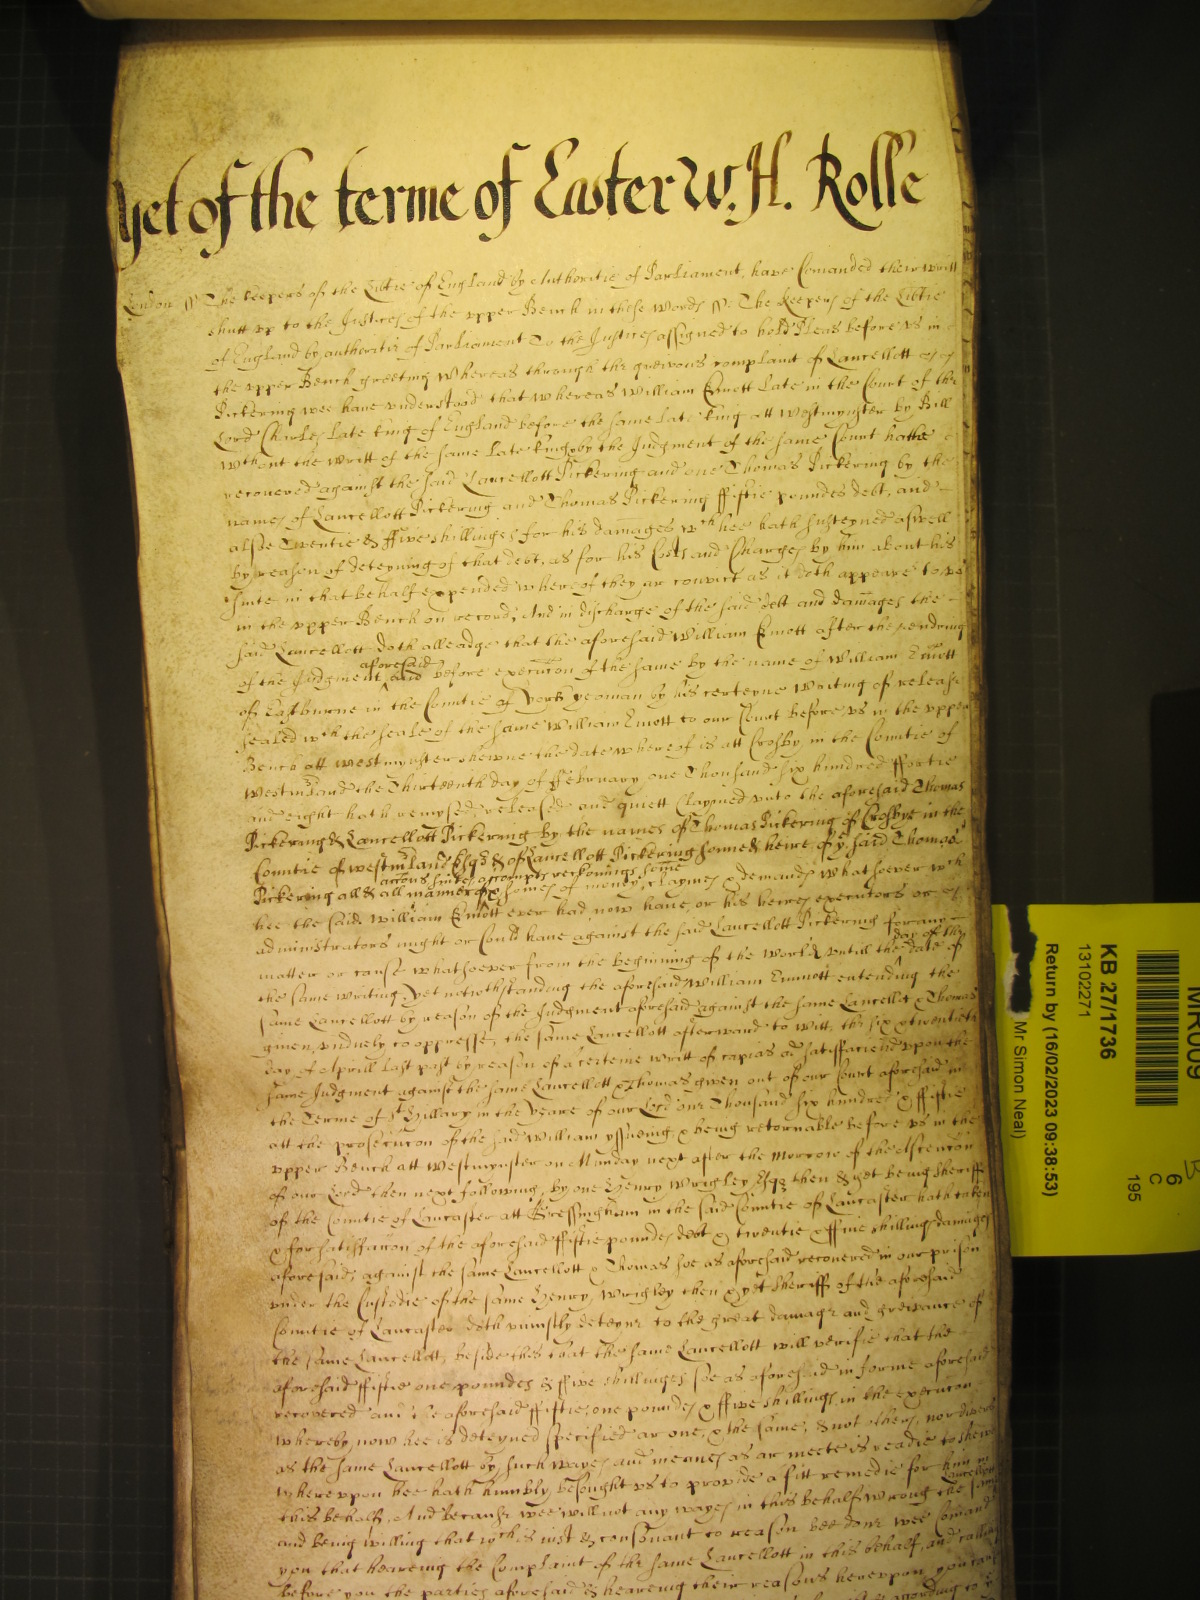 yet of the terme of Easter W. H. Rolle
London ss The keepers of the Libtie of England by Authoritie of Parliament, have Comanded their writt
shutt vp to the Justices of the vpper Bench in these words ss: The keepers of the Libtie
of England by authoritie of Parliament To the Justices assigned to hold Pleas before vs in
the vpper Bench greeting Whereas through the greivous complaint of Lancellott
Pickering wee have vnderstood that whereas William Emott Late in the Court of the
Lord Charles late king of England before the same late king att Westmynster by Bill
wthout the writt of the same Late king & by the Judgment of the same Court hathe
recouered against the said Lancellott Pickering and one Thomas Pickering by the
names of Lancellott Pickering and Thomas Pickering ffiftie poundes debt, and
alsoe Twentie & ffive shillinges for his damages wch hee hath susteyned aswell
by reason of deteyning of that debt, as for his Costs and Charges by him about his
suite in that behalf expended whereof they ar convict as it doth appeare to vs
in the vpper Bench on record, And in discharge of the said debt and damages the
said Lancellott doth alleadge that the aforesaid William Emott after the rendring
of the Judgment aforesaid and before execucon of the same by the name of William Emott
of Eastburne in the Countie of York yeoman by his certeyne writing of release
sealed wth the seale of the same William Emott to our Court before vs in the vpper
Bench att westmynster shewne the date whereof is att Crosby in the Countie of
Westmland the Thirteenth day of ffebruary one Thousand six hundred ffortie
and eight hath remysed, released and quiett Claymed vnto the aforesaid Thomas
Pickering & Lancellott Pickering by the names of Thomas Pickering of Crosbye in the
Countie of westmland Esqr & of Lancellott Pickering sonne & heire of ye said Thomas
Pickering all & all manner of accons suites accompts reckonings some somes of money, claymes & demands whatsoever wch
hee the said William Emott ever had now have, or his heires executors or
administrators might or Could have against the said Lancellott Pickering for any
matter or cause whatsoever from the beginning of the World vntill the day of the date of
the same writing, yet notwthstanding the aforesaid William Emmott entending the
same Lancellott by reason of the Judgment aforesaid against the same Lancellot & Thomas
given, vnduely to oppresse, the same Lancellott afterward to witt, the six & twentieth
day of Aprill last past by reason of a certeine writt of capias ad satisfaciend vpon the
same Judgment against the same Lancellott & Thomas given out of our Court aforesaid in
the Terme of St Hillary in the yeare of our Lord one Thousand six hundred & ffiftie
att the prosecucon of the said William yssueing, & being retornable before vs in the
vpper Bench att Westmynster on Munday next after the Morrow of the Ascencon
of our Lord then next following, by one Henry Wrigley Esqr then & yet being Sheriff
of the Countie of Lancaster att Gressingham in the said Countie of Lancaster hath taken
& for satisfaccon of the aforesaid ffiftie poundes debt & twentie & ffive shillings damages
aforesaid, against the same Lancellott & Thomas soe as aforesaid recouered in our prison
vnder the Custodie of the same Henry Wrigley then & yet Sheriff of the aforesaid
Countie of Lancaster doth vniustly deteyne to the great damage and greivance of
the same Lancellott, beside this that the same Lancellott will verifie that the
aforesaid ffiftie one poundes & ffive shillinges soe as aforesaid in forme aforesaid
recovered and the aforesaid ffiftie one poundes & ffive shillings, in the execucon
whereby now hee is deteyned specified ar one, & the same, & not others, nor divers
as the same Lancellott by such wayes and meanes as ar meete is readie to shew
wherevpon hee hath humbly besought vs to provide a fitt remedie for him in
this behalf, And because wee will not any wayes in this behalf wrong the same Lancellott
and being willing that wch is iust & consonant to reason bee done wee Comand
you that hearing the Complaint of the same Lancellott in this behalf, and calling
before you the parties aforesaid & hearing their reasons herevpon you cause
according to
MR009
6
C
195
KB 27/1736
13102271
Return by (16/02/2023 09:38:53)
Mr Simon Neal)